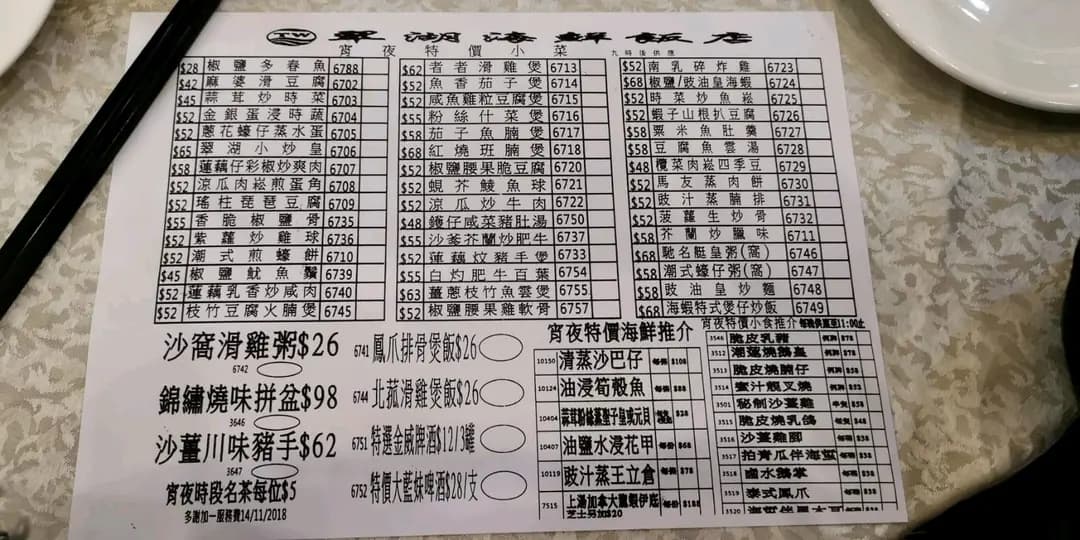 TW 翠湖海鮮飯店
宵夜特價小菜 九時後供應
$28 椒鹽多春魚 6788
$42 麻婆滑豆腐 6702
$45 蒜茸炒時菜 6703
$52 金銀蛋浸時蔬 6704
$52 蔥花蠔仔蒸水蛋 6705
$65 翠湖小炒皇 6706
$58 蓮藕仔彩椒炒爽肉 6707
$52 涼瓜肉崧煎蛋角 6708
$52 瑤柱琵琶豆腐 6709
$55 香脆椒鹽骨 6735
$52 紫蘿炒雞球 6736
$52 潮式煎蠔餅 6710
$45 椒鹽魷魚鬚 6739
$52 蓮藕乳香炒咸肉 6740
$52 枝竹豆腐火腩煲 6745
$62 者者滑雞煲 6713
$52 魚香茄子煲 6714
$52 咸魚雞粒豆腐煲 6715
$55 粉絲什菜煲 6716
$58 茄子魚腩煲 6717
$68 紅燒班腩煲 6718
$52 椒鹽腰果脆豆腐 6720
$52 蜆芥鯪魚球 6721
$52 涼瓜炒牛肉 6722
$48 鑊仔咸菜豬肚湯 6750
$55 沙爹芥蘭炒肥牛 6737
$52 蓮藕炆豬手煲 6733
$55 白灼肥牛百葉 6754
$63 薑蔥枝竹魚雲煲 6755
$52 椒鹽雞軟骨 6757
$52 南乳碎炸雞 6723
$68 椒鹽/豉油皇海蝦 6724
$52 時菜炒魚崧 6725
$52 蝦子山根扒豆腐 6726
$58 粟米魚肚羹 6727
$58 豆腐魚雲湯 6728
$48 欖菜肉崧四季豆 6729
$52 馬友蒸肉餅 6730
$52 豉汁蒸腩排 6731
$52 菠蘿生炒骨 6732
$58 芥蘭炒臘味 6711
$68 馳名艇皇粥(窩) 6746
$58 潮式蠔仔粥(窩) 6747
$58 豉油皇炒麵 6748
$68 海蝦特式煲仔炒飯 6749
沙窩滑雞粥$26
6742
錦繡燒味拼盆$98
3646
沙薑川味豬手$62
3647
宵夜時段名茶每位$5
多謝加一服務費14/11/2018
6741 鳳爪排骨煲飯$26
6744 北菰滑雞煲飯$26
6751 特選金威啤酒$12/3罐
6752 特價大藍妹啤酒$28/支
宵夜特價海鮮推介
10150 清蒸沙巴仔 每條 $108
10124 油浸筍殼魚 每條 $88
10404 蒜茸粉絲蒸聖子皇或元貝 $28
10407 油鹽水浸花甲 每份 $68
10119 豉汁蒸王立倉 每條 $78
7515 上湯加拿大龍蝦伊底 每份 $188
芝士另加$20
宵夜特價小食推介 每晚供應至11:00止
3546 脆皮乳豬 例牌 $78
3512 潮蓮燒鵝皇 例牌 $78
3513 脆皮燒腩仔 例牌 $58
3514 蜜汁靚叉燒 例牌 $52
3501 秘制沙薑雞 半隻 $58
3515 脆皮燒乳鴿 每隻 $48
3516 沙薑雞腳 每碟 $38
3517 拍青瓜伴海蜇 每碟 $38
3518 鹵水鵝掌 每碟 $38
3519 泰式鳳爪 每碟 $38
3520